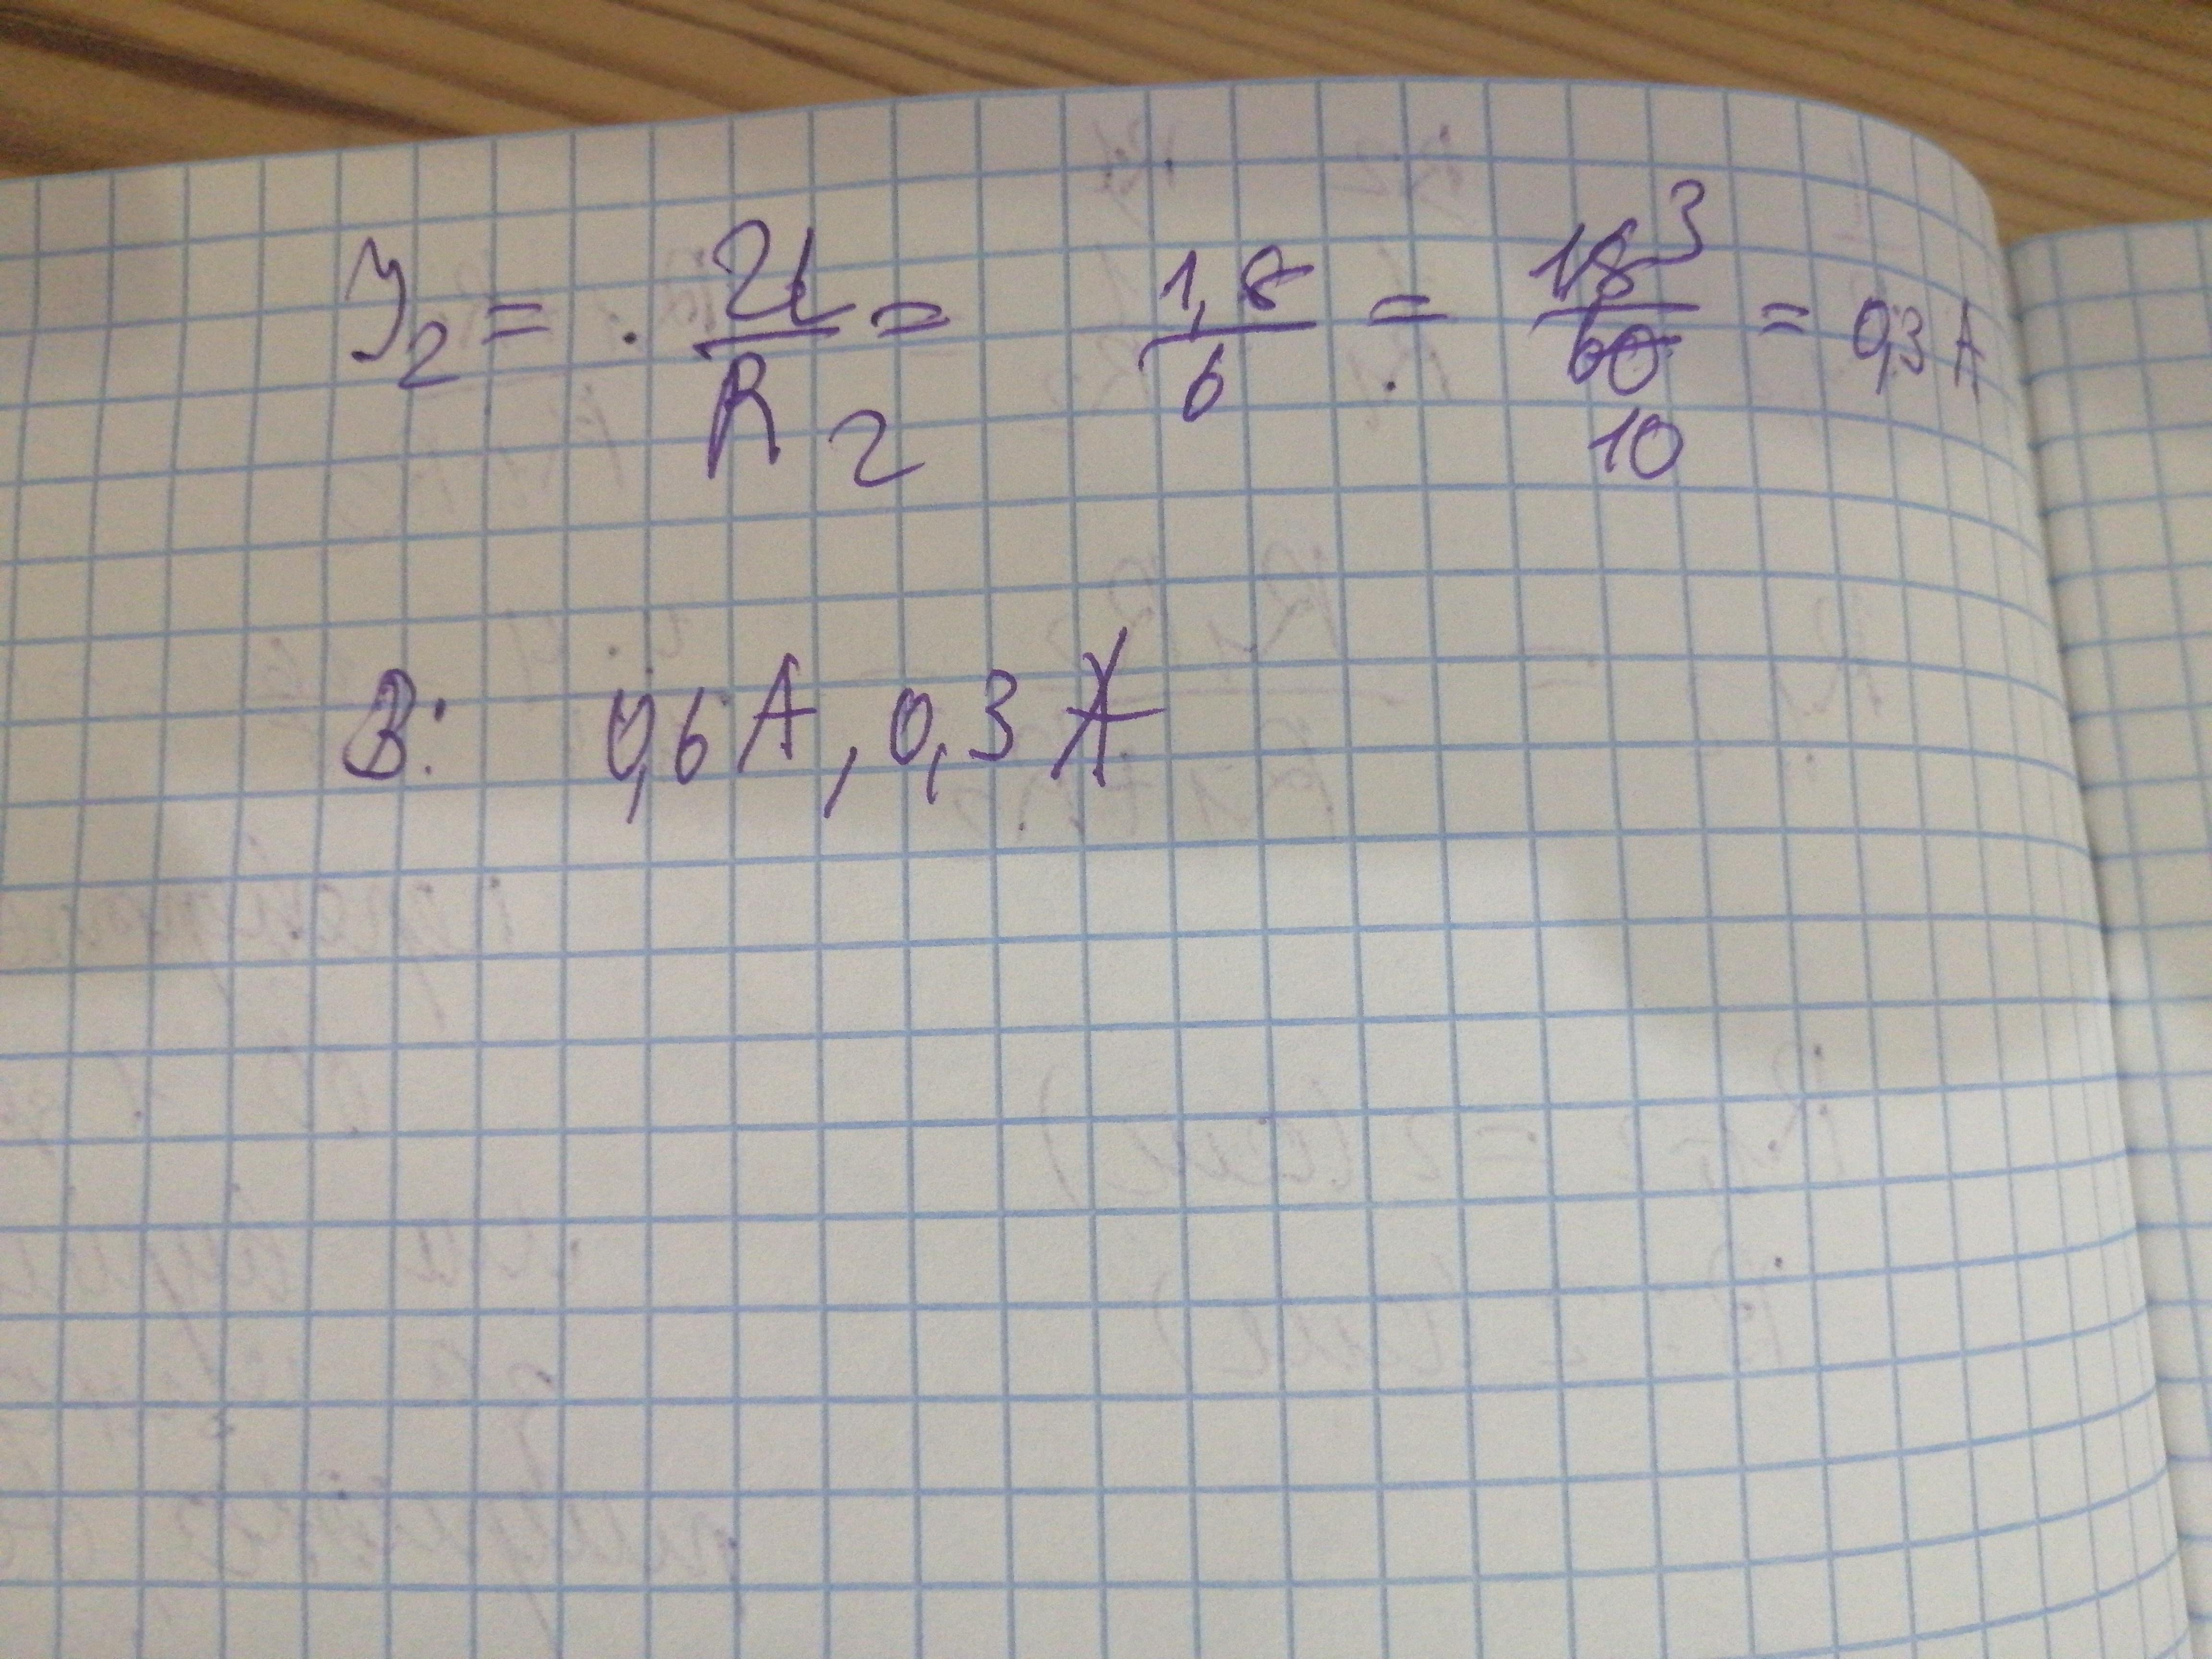 I₂ = U/R₂ = 1,8/6 = 18³/60₁₀ = 0,3 A
В: 0,6 A, 0,3 A